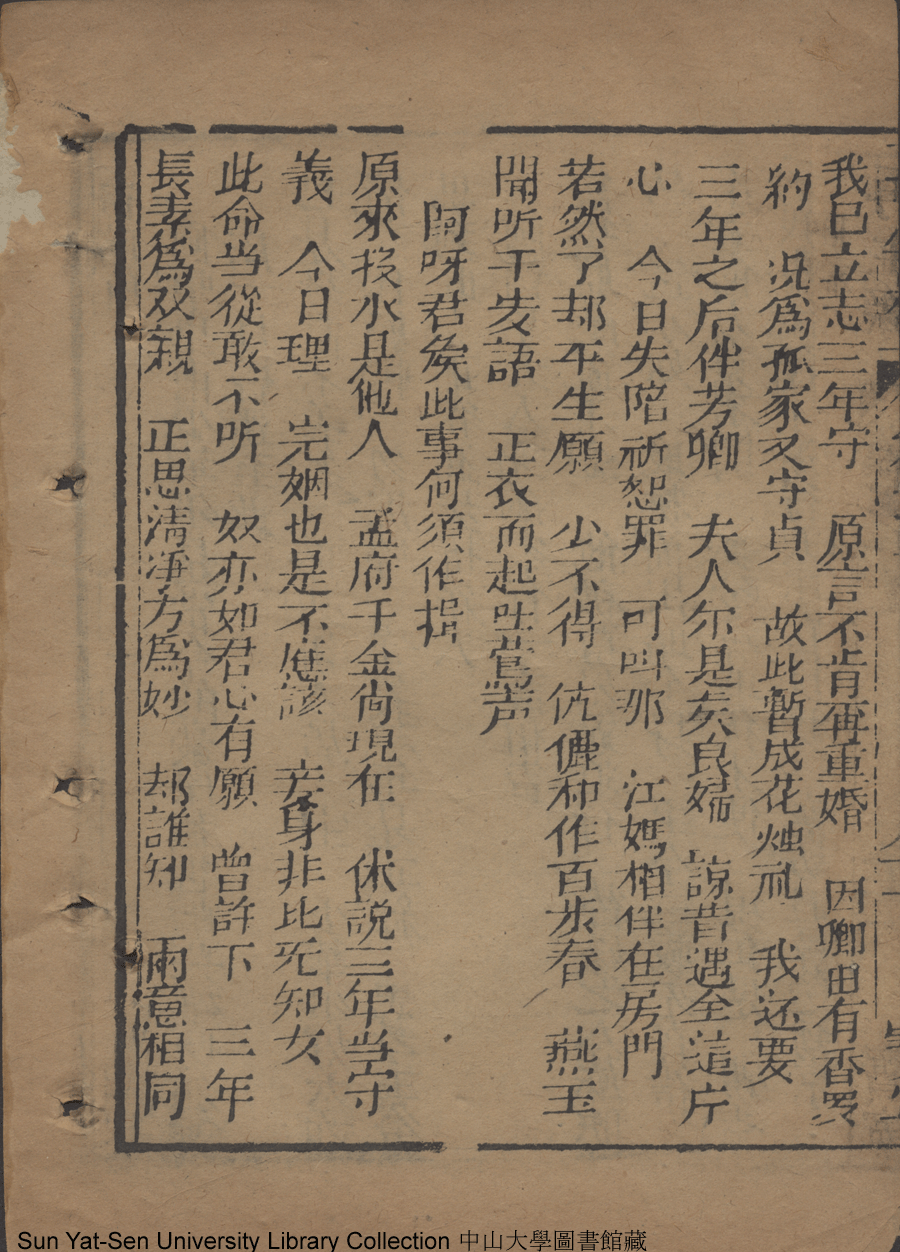 我已立志三年守　原言不肯再重婚　因卿由有香羅
約　况爲孤家又守貞　故此暫成花烛礼　我还要
三年之后伴芳卿　夫人尔是矣良婦　諒昔遇全這片
心　今日失陪祈恕罪　可叫那　江媽相伴在房門
若然了却平生願　少不得　伉儷和作百歩春　燕玉
聞听干歩語　正衣而起吐鶯声
阿呀君矦此事何須作揖
原來投水是他人　孟府千金尚現在　休説三年当守
義　今日理　完姻也是不應該　妾身非比无知女
此命当從敢不听　奴亦如君心有願　曾許下　三年
長素爲双親　正思清凈方爲妙　却誰知　兩意相同
Sun Yat-Sen University Library Collection 中山大學圖書館藏